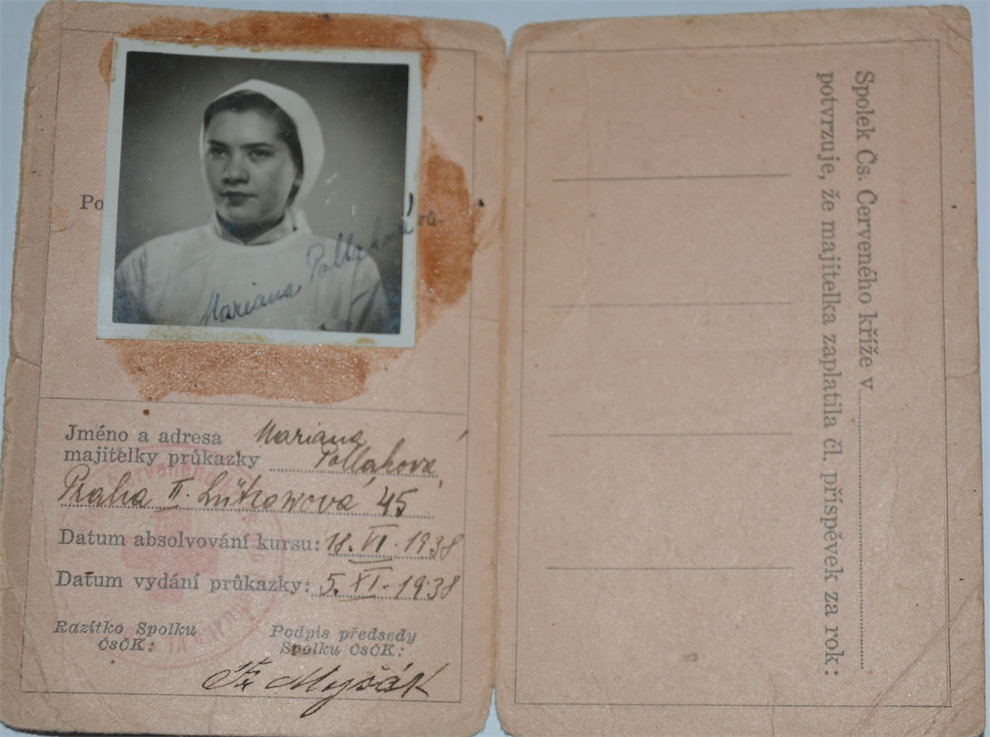 Po
Mariana Pollaková
Jméno a adresa Mariana
majitelky průkazky Pollaková,
Praha II. Lützowová 45
Datum absolvování kursu: 18. VI. 1938
Datum vydání průkazky: 5. XI. 1938
Razítko Spolku Podpis předsedy
ČsČK: Spolku ČsČK:
Fr Myšák
Spolek Čs. Červeného kříže v
potvrzuje, že majitelka zaplatila čl. příspěvek za rok: